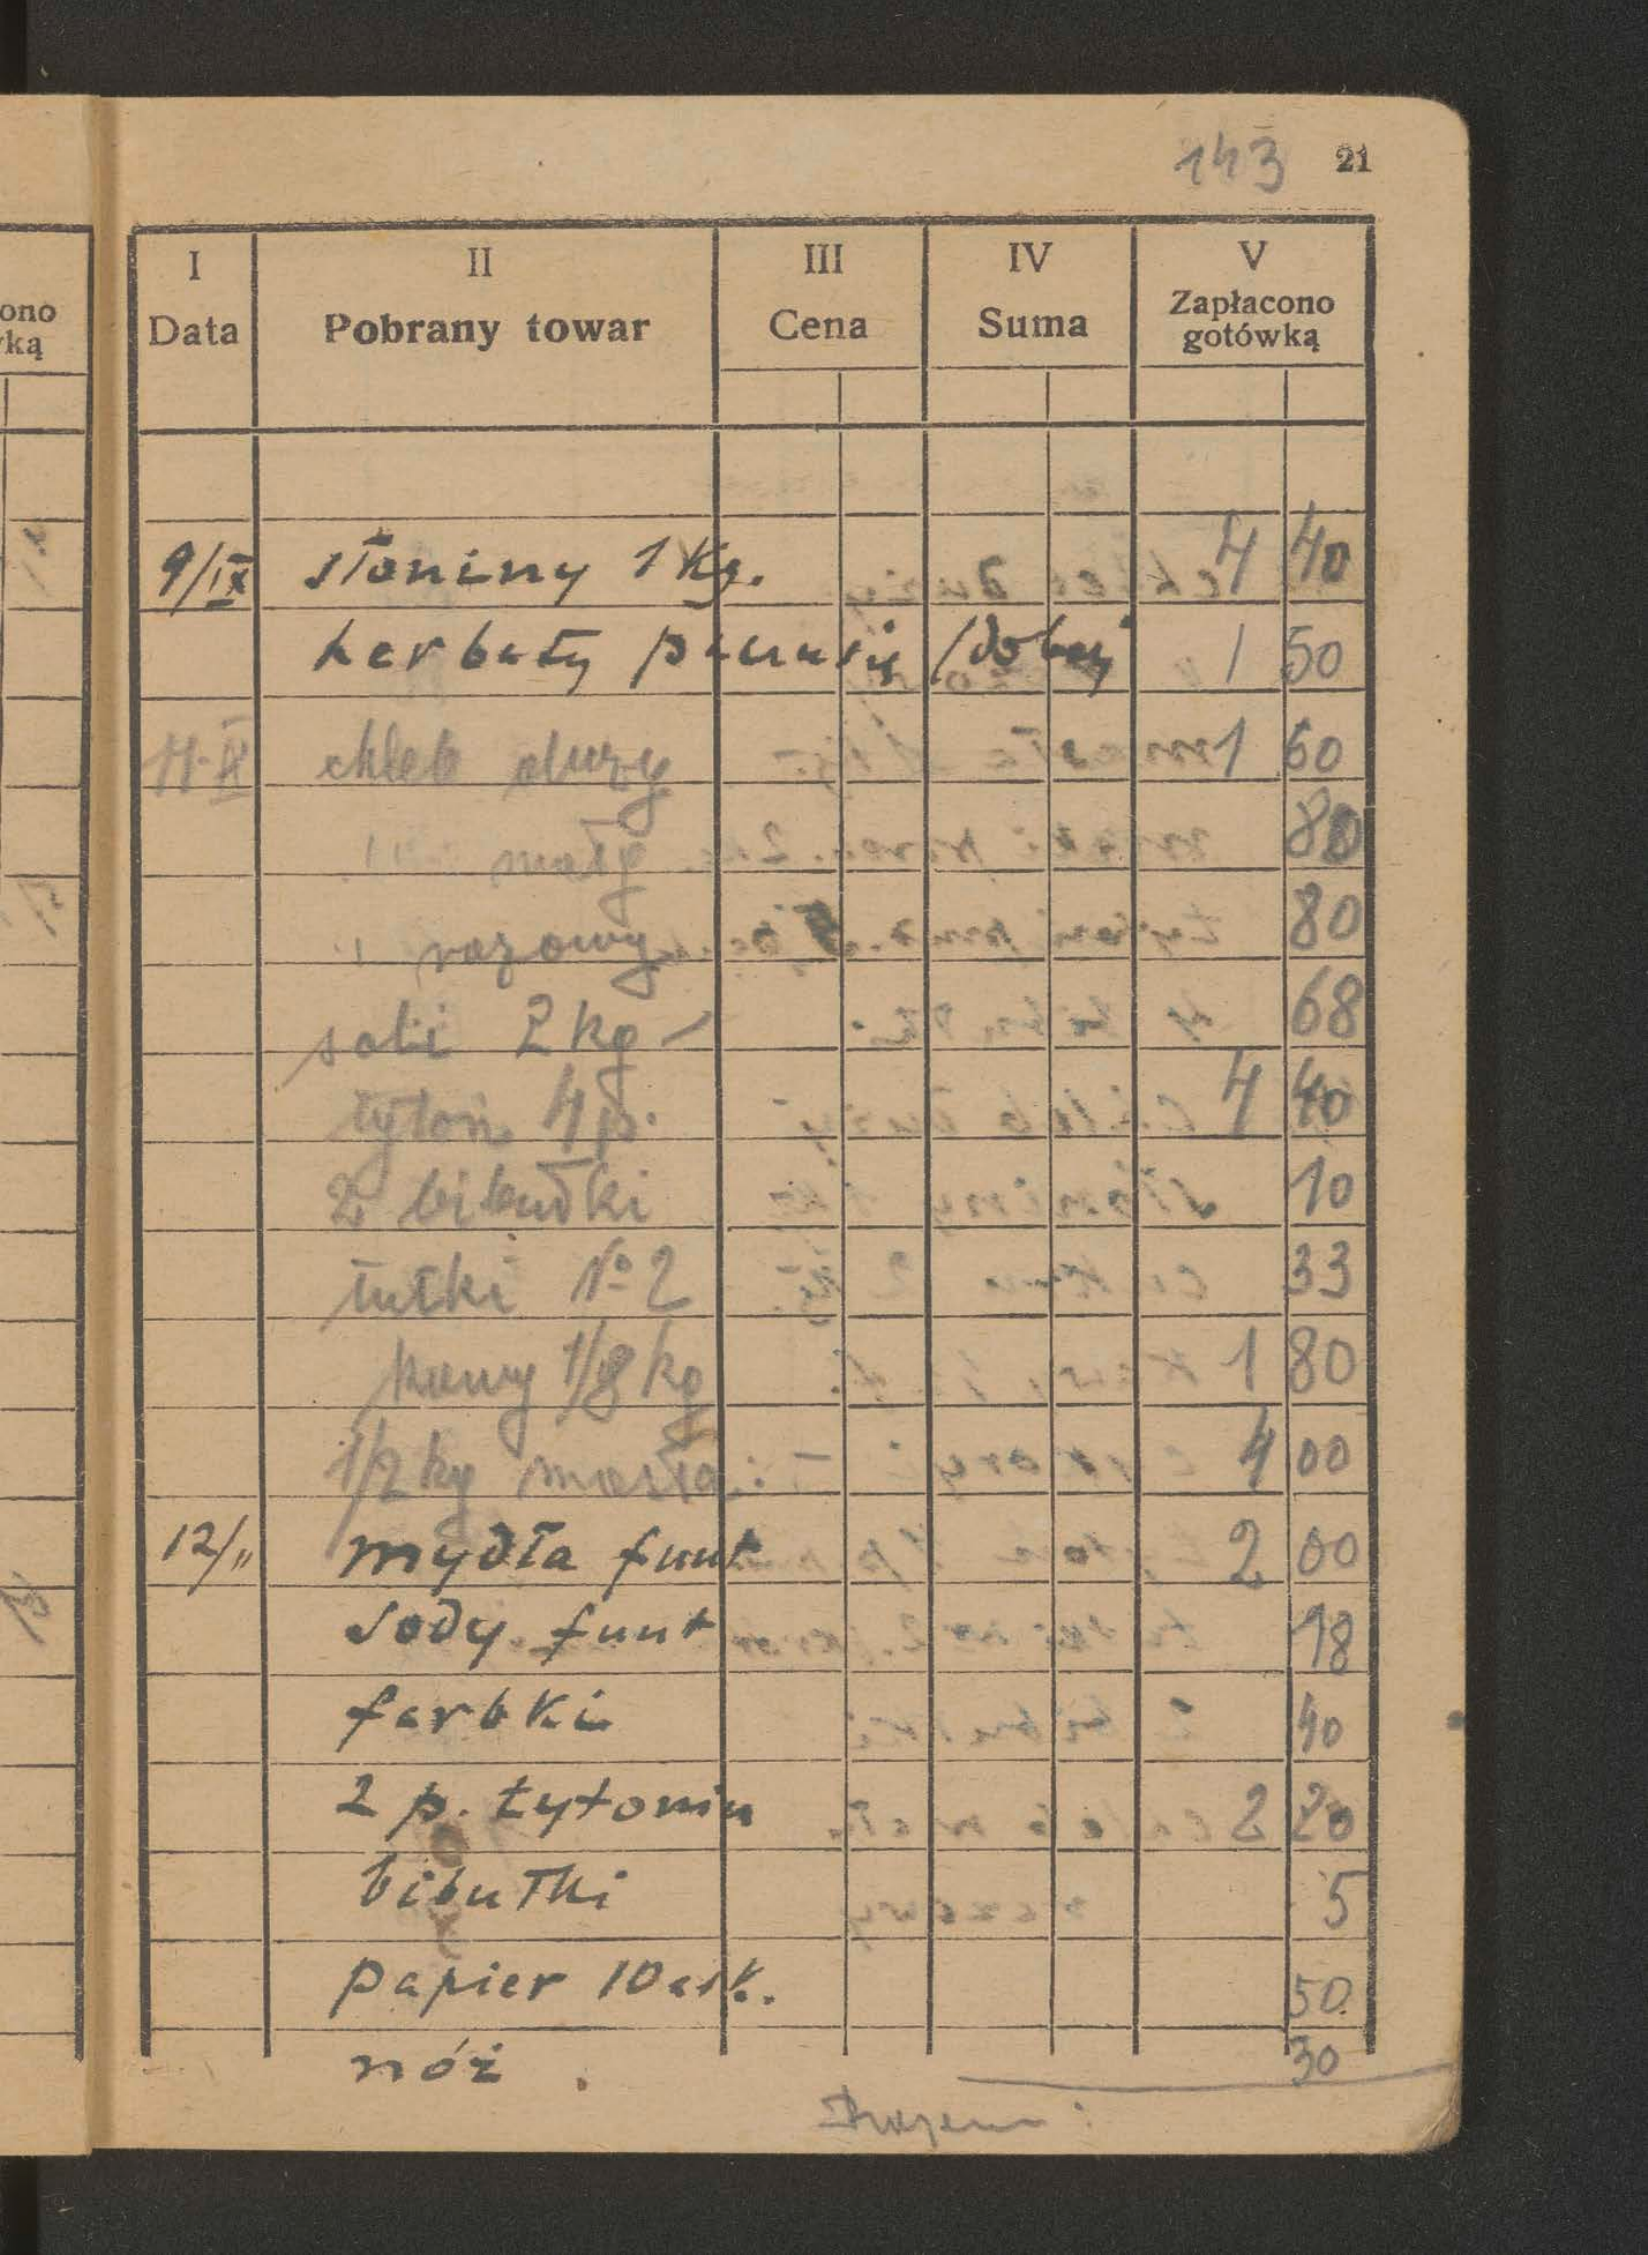 143 21
I II III IV V
Data Pobrany towar Cena Suma Zapłacono gotówką
9/IX słoniny 1 Kg. 4 40
herbaty (dobrej 1 50
11.IX chleb duży 1 60
" mały 80
" razowy 80
soli 2 kg 68
tytoń 4 p. 4 40
2 bibułki 10
tutki № 2 33
kawy 1/8 kg 1 80
1/2 kg masła: 4 00
12/" mydła funt 2 00
sody funt 18
farbki 40
2 p. tytoniu 2 20
bibułki 5
papier 10 ark. 50
nóż . 30
Razem :
ono
ką